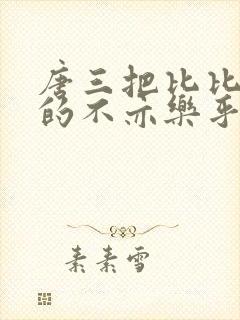 唐三把比比
的不亦樂乎
素素雪